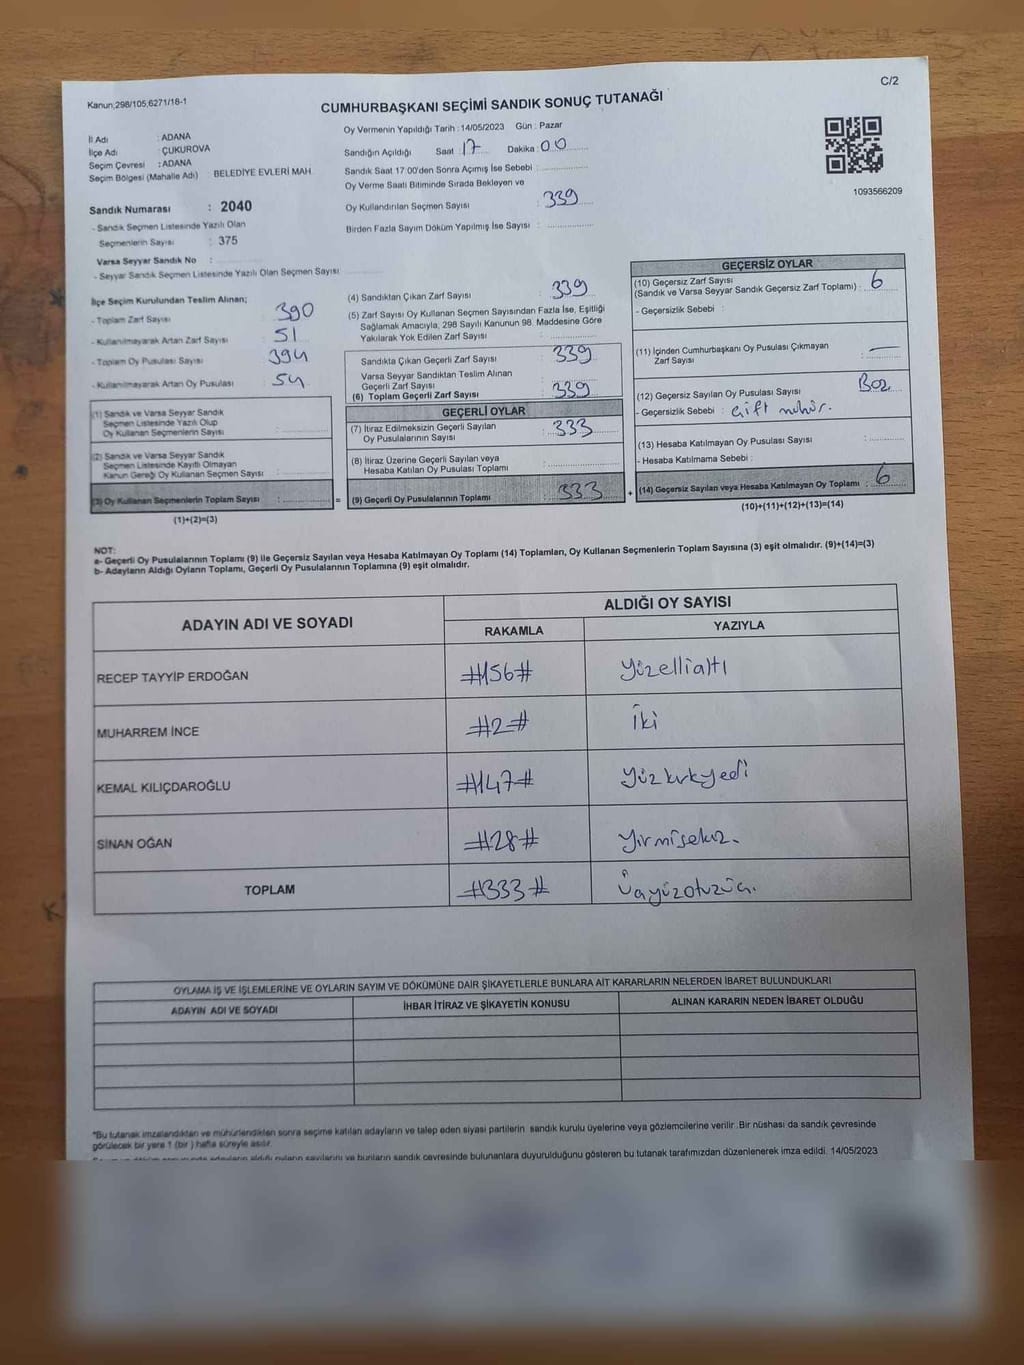 Kanun;298/105,6271/18-1
C/2
CUMHURBAŞKANI SEÇİMİ SANDIK SONUÇ TUTANAĞI
İl Adı : ADANA
İlçe Adı : ÇUKUROVA
Seçim Çevresi : ADANA
Seçim Bölgesi (Mahalle Adı) BELEDİYE EVLERİ MAH.
Sandık Numarası : 2040
- Sandık Seçmen Listesinde Yazılı Olan
Seçmenlerin Sayısı : 375
Varsa Seyyar Sandık No :
- Seyyar Sandık Seçmen Listesinde Yazılı Olan Seçmen Sayısı
Oy Vermenin Yapıldığı Tarih : 14/05/2023 Gün : Pazar
Sandığın Açıldığı Saat : 17 Dakika : 00
Sandık Saat 17:00'den Sonra Açımış İse Sebebi :
Oy Verme Saati Bitiminde Sırada Bekleyen ve
Oy Kullandırılan Seçmen Sayısı : 339
Birden Fazla Sayım Döküm Yapılmış İse Sayısı :
1093566209
İlçe Seçim Kurulundan Teslim Alınan;
- Toplam Zarf Sayısı 390
- Kullanılmayarak Artan Zarf Sayısı 51
- Toplam Oy Pusulası Sayısı 394
- Kullanılmayarak Artan Oy Pusulası 54
(1) Sandık ve Varsa Seyyar Sandık
Seçmen Listesinde Yazılı Olup
Oy Kullanan Seçmenlerin Sayısı :
(2) Sandık ve Varsa Seyyar Sandık
Seçmen Listesinde Kayıtlı Olmayan
Kanun Gereği Oy Kullanan Seçmen Sayısı :
(3) Oy Kullanan Seçmenlerin Toplam Sayısı : =
(1)+(2)=(3)
(4) Sandıktan Çıkan Zarf Sayısı : 339
(5) Zarf Sayısı Oy Kullanan Seçmen Sayısından Fazla İse, Eşitliği
Sağlamak Amacıyla, 298 Sayılı Kanunun 98. Maddesine Göre
Yakılarak Yok Edilen Zarf Sayısı :
Sandıkta Çıkan Geçerli Zarf Sayısı : 339
Varsa Seyyar Sandıktan Teslim Alınan
Geçerli Zarf Sayısı :
(6) Toplam Geçerli Zarf Sayısı : 339
GEÇERLİ OYLAR
(7) İtiraz Edilmeksizin Geçerli Sayılan
Oy Pusulalarının Sayısı : 333
(8) İtiraz Üzerine Geçerli Sayılan veya
Hesaba Katılan Oy Pusulası Toplamı :
(9) Geçerli Oy Pusulalarının Toplamı 333 +
GEÇERSİZ OYLAR
(10) Geçersiz Zarf Sayısı
(Sandık ve Varsa Seyyar Sandık Geçersiz Zarf Toplamı) : 6
- Geçersizlik Sebebi :
(11) İçinden Cumhurbaşkanı Oy Pusulası Çıkmayan
Zarf Sayısı : —
(12) Geçersiz Sayılan Oy Pusulası Sayısı : Boz
- Geçersizlik Sebebi : Çift mühür.
(13) Hesaba Katılmayan Oy Pusulası Sayısı :
- Hesaba Katılmama Sebebi :
(14) Geçersiz Sayılan veya Hesaba Katılmayan Oy Toplamı : 6
(10)+(11)+(12)+(13)=(14)
NOT:
a- Geçerli Oy Pusulalarının Toplamı (9) ile Geçersiz Sayılan veya Hesaba Katılmayan Oy Toplamı (14) Toplamları, Oy Kullanan Seçmenlerin Toplam Sayısına (3) eşit olmalıdır. (9)+(14)=(3)
b- Adayların Aldığı Oyların Toplamı, Geçerli Oy Pusulalarının Toplamına (9) eşit olmalıdır.
ADAYIN ADI VE SOYADI ALDIĞI OY SAYISI
RAKAMLA YAZIYLA
RECEP TAYYİP ERDOĞAN #156# yüzellialtı
MUHARREM İNCE #2# İki
KEMAL KILIÇDAROĞLU #147# yüzkırkyedi
SİNAN OĞAN #28# yirmisekiz.
TOPLAM #333# Üçyüzotuzüç.
OYLAMA İŞ VE İŞLEMLERİNE VE OYLARIN SAYIM VE DÖKÜMÜNE DAİR ŞİKAYETLERLE BUNLARA AİT KARARLARIN NELERDEN İBARET BULUNDUKLARI
ADAYIN ADI VE SOYADI İHBAR İTİRAZ VE ŞİKAYETİN KONUSU ALINAN KARARIN NEDEN İBARET OLDUĞU
*Bu tutanak imzalandıktan ve mühürlendikten sonra seçime katılan adayların ve talep eden siyasi partilerin sandık kurulu üyelerine veya gözlemcilerine verilir. Bir nüshası da sandık çevresinde
görülecek bir yere 1 (bir ) hafta süreyle asılır.
adayların aldığı oyların sayılarını ve bunların sandık çevresinde bulunanlara duyurulduğunu gösteren bu tutanak tarafımızdan düzenlenerek imza edildi. 14/05/2023